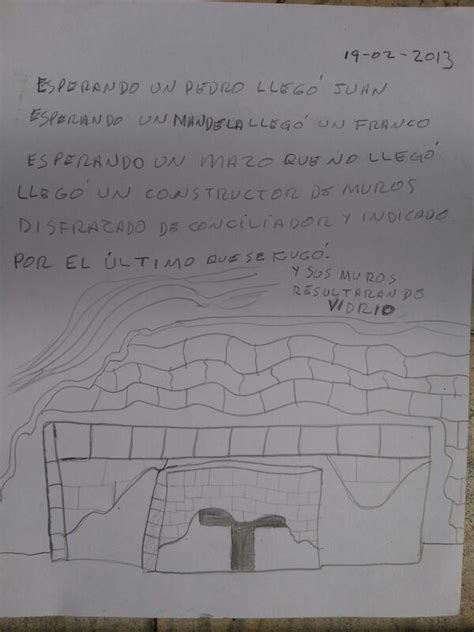 19-02-2013
ESPERANDO UN PEDRO LLEGÓ JUAN
ESPERANDO UN MANDELA LLEGÓ UN FRANCO
ESPERANDO UN MAZO QUE NO LLEGÓ
LLEGÓ UN CONSTRUCTOR DE MUROS
DISFRAZADO DE CONCILIADOR Y INDICADO
POR EL ÚLTIMO QUE SE FUGÓ.
Y SUS MUROS
RESULTARAN DE
VIDRIO